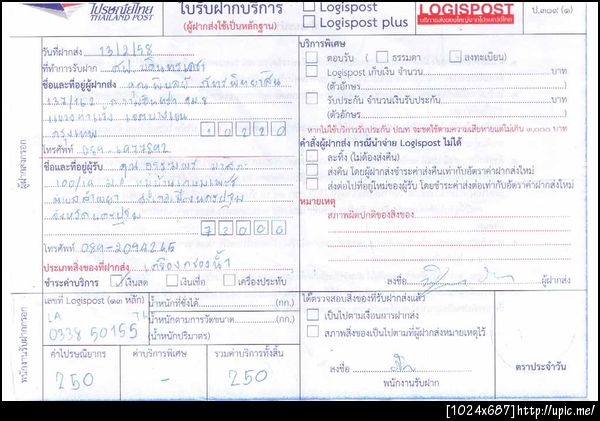 ไปรษณีย์ไทย
THAILAND POST
ใบรับฝากบริการ
(ผู้ฝากส่งใช้เป็นหลักฐาน)
Logispost
Logispost plus
LOGISPOST
ป.๓๐๙ (๑)
วันที่ฝากส่ง 13/2/58
ที่ทำการรับฝาก
ชื่อและที่อยู่ผู้ฝากส่ง คุณ
137/162
กรุงเทพ 10220
โทรศัพท์ 089-1677592
ชื่อและที่อยู่ผู้รับ คุณ
100/19
จังหวัดนครปฐม
73000
โทรศัพท์ 089-2094265
ประเภทสิ่งของที่ฝากส่ง เครื่องกรองน้ำ
ชำระค่าบริการ เงินสด เงินเชื่อ เครื่องประทับ
ผู้ฝากส่งกรอก
บริการพิเศษ
ตอบรับ ( ธรรมดา ลงทะเบียน)
Logispost เก็บเงิน จำนวน บาท
(ตัวอักษร )
รับประกัน จำนวนเงินรับประกัน บาท
(ตัวอักษร )
หากไม่ใช้บริการรับประกัน ปณท จะชดใช้ตามความเสียหายแต่ไม่เกิน ๓,๐๐๐ บาท
คำสั่งผู้ฝากส่ง กรณีนำจ่าย Logispost ไม่ได้
ละทิ้ง (ไม่ต้องส่งคืน)
ส่งคืน โดยผู้ฝากส่งชำระค่าส่งคืนเท่ากับอัตราค่าฝากส่งใหม่
ส่งต่อไปที่อยู่ใหม่ของผู้รับ โดยชำระค่าส่งต่อเท่ากับอัตราค่าฝากส่งใหม่
หมายเหตุ
สภาพผิดปกติของสิ่งของ
ลงชื่อ ผู้ฝากส่ง
พนักงานรับฝากกรอก
เลขที่ Logispost (๑๓ หลัก)
LA TH
0338 50155
น้ำหนักที่ชั่งได้ (กก.)
น้ำหนักตามการวัดขนาด (กก.)
(น้ำหนักปริมาตร)
ค่าไปรษณียากร ค่าบริการพิเศษ รวมค่าบริการทั้งสิ้น
250 - 250
ได้ตรวจสอบสิ่งของที่รับฝากส่งแล้ว
เป็นไปตามเงื่อนการฝากส่ง
สภาพสิ่งของเป็นไปตามที่ผู้ฝากส่งหมายเหตุไว้
ลงชื่อ
พนักงานรับฝาก
ตราประจำวัน
[1024x687]http://upic.me/